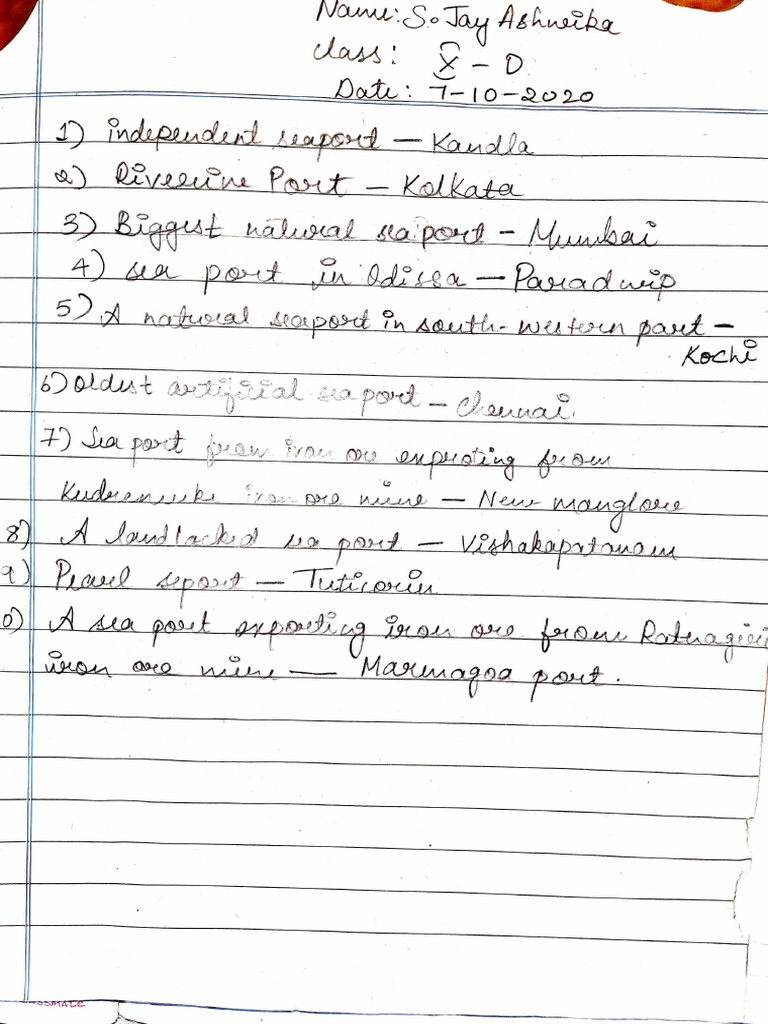 Name: S. Jay Ashneika
Class: X - D
Date: 7-10-2020
1) independent seaport — Kandla
2) Riverine Port — Kolkata
3) Biggest natural sea port - Mumbai
4) sea port in Odissa — Paradwip
5) A natural seaport in south-western part -
Kochi
6) Oldest artificial sea port - Chennai.
7) Sea port from iron ore exproting from
Kudremuke iron ore mine — New manglore
8) A landlacked sea port — Vishakapatanam
9) Pearl seport — Tuticorin
0) A sea port exporting iron ore from Ratnagiri
iron ore mine — Marmagoa port.